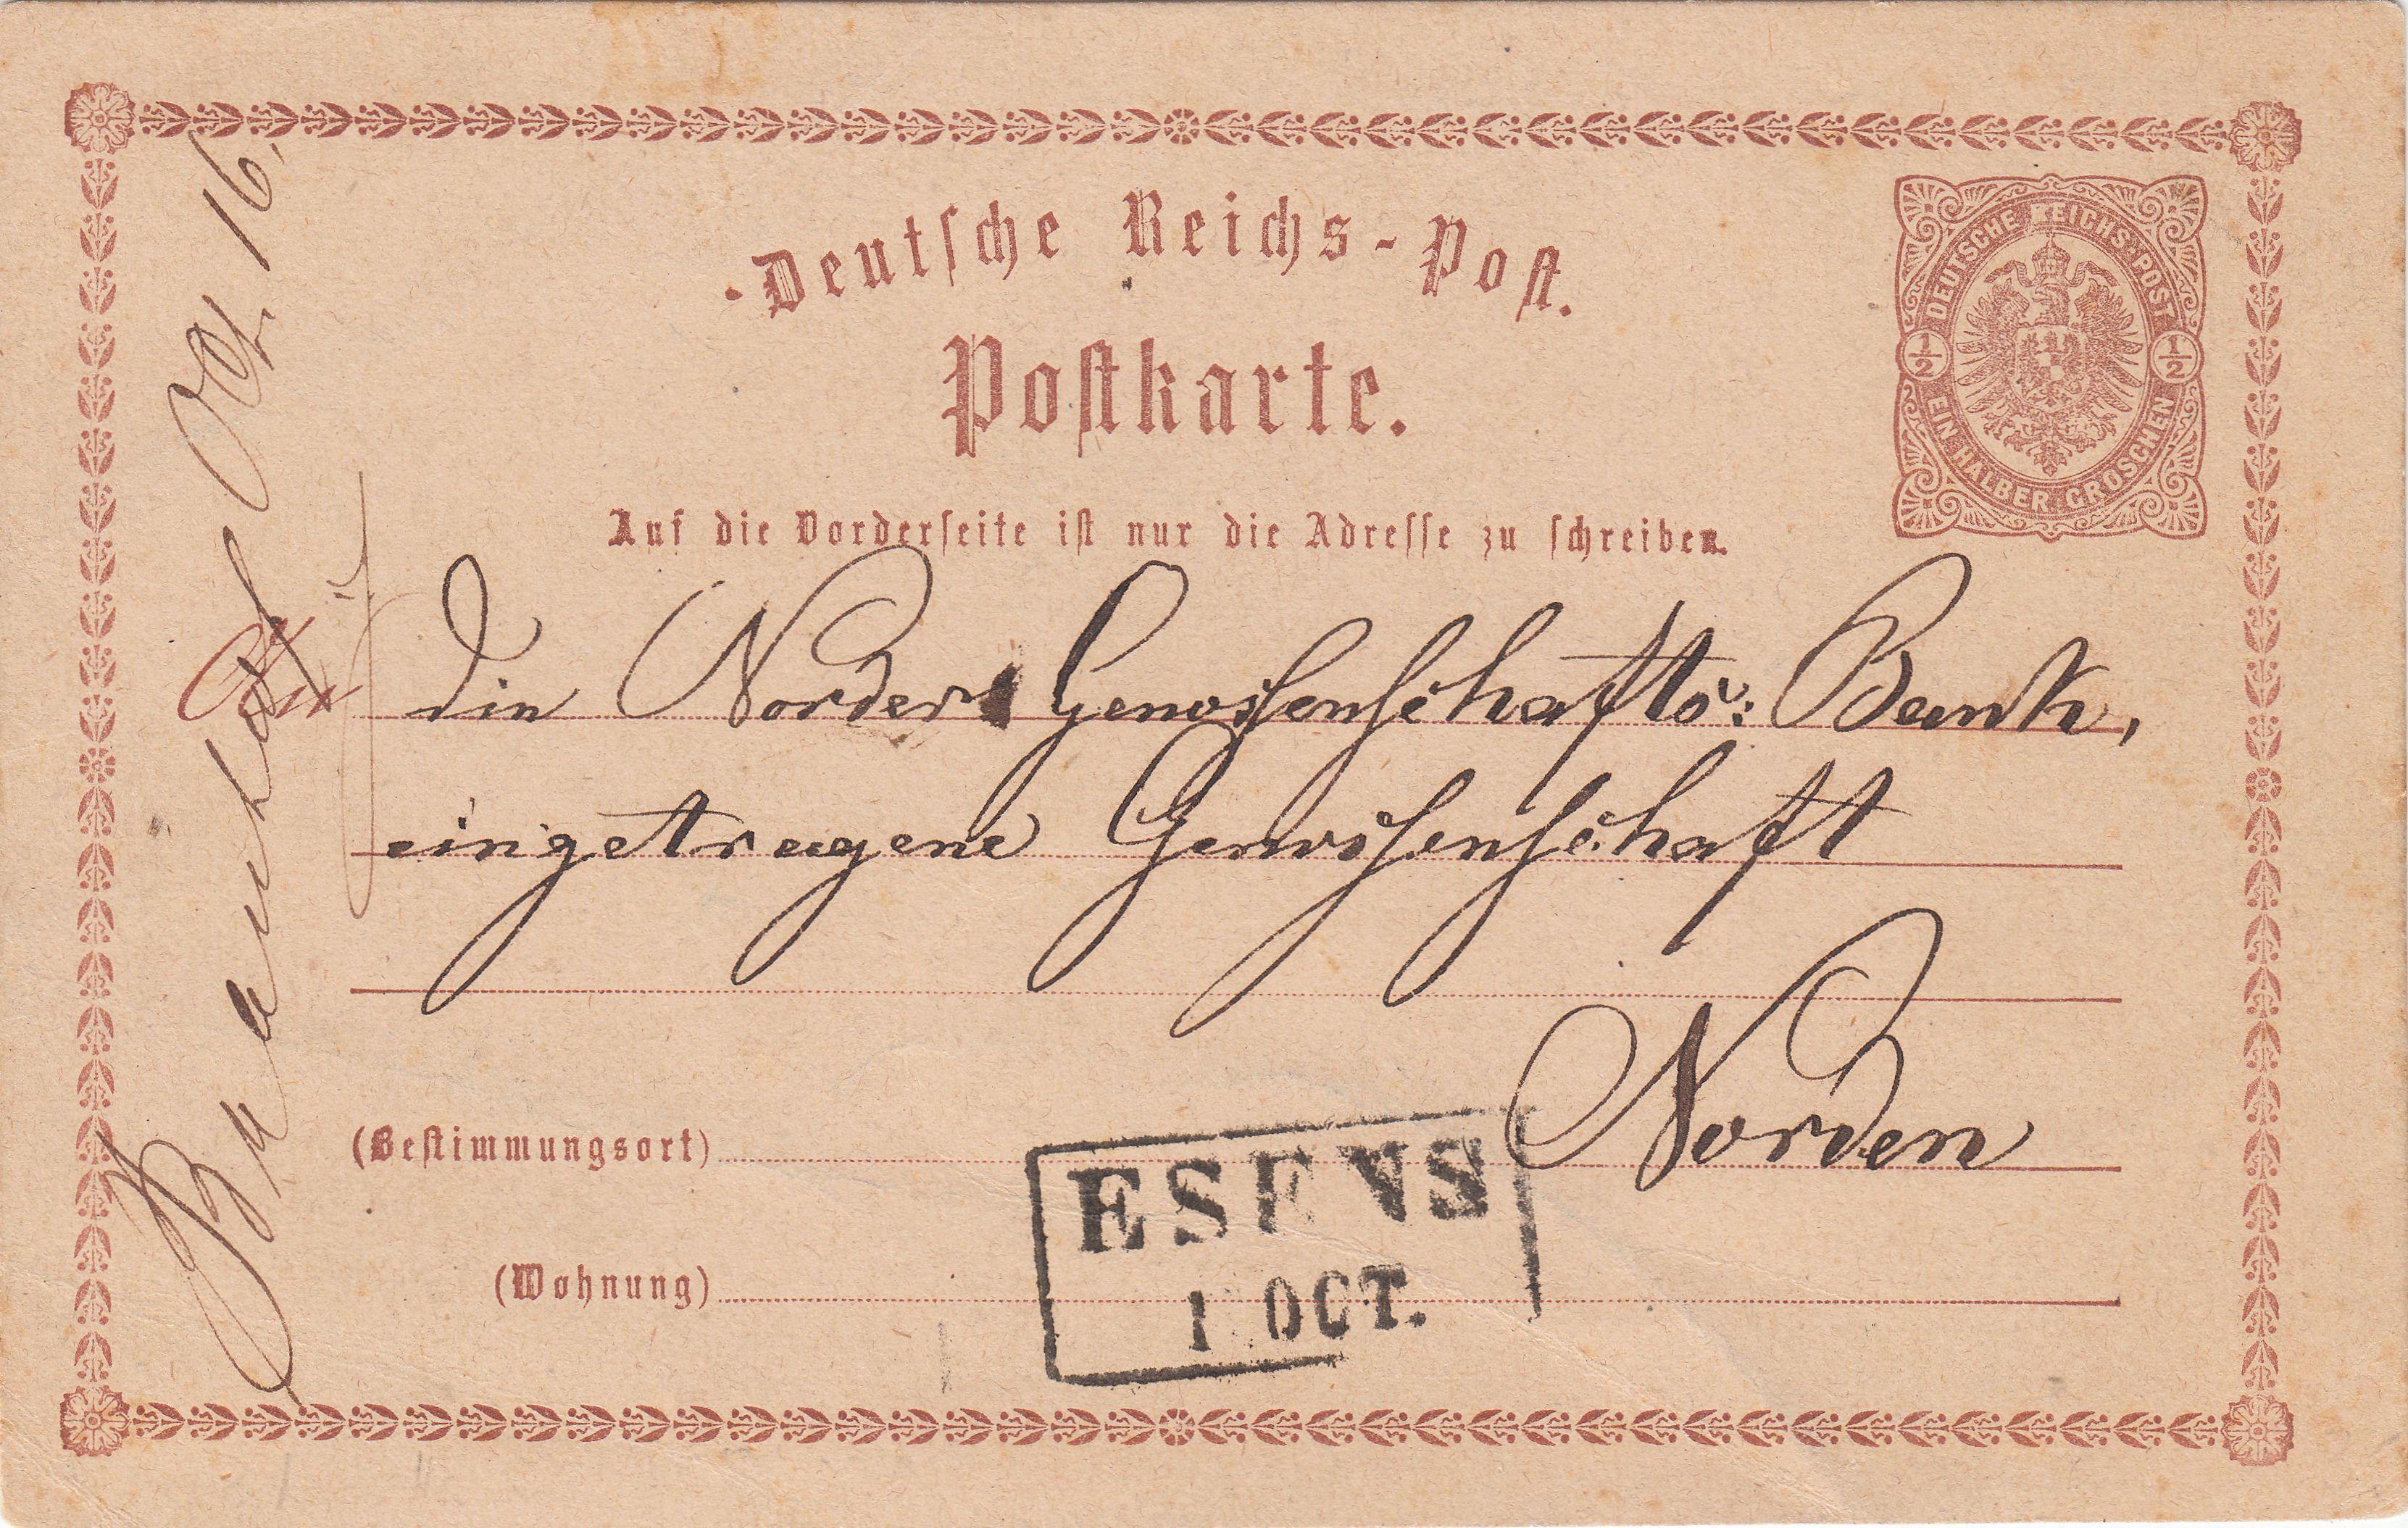 Deutsche Reichs-Post.
Postkarte.
DEUTSCHE REICHS-POST
1/2 1/2
EIN HALBER GROSCHEN
Auf die Vorderseite ist nur die Adresse zu schreiben.
An die Norder Genossenschafts: Bank,
eingetragene Genossenschaft
Norden
(Bestimmungsort)
(Wohnung)
ESENS
1 OCT.
16.